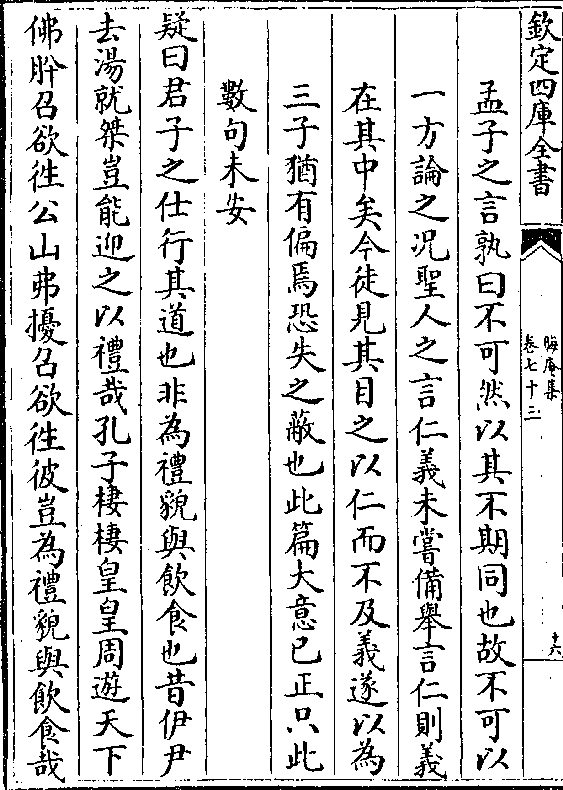 欽定四庫全書
晦庵集
卷七十三
十六
孟子之言孰曰不可然以其不期同也故不可以
一方論之况聖人之言仁義未嘗備舉言仁則義
在其中矣今徒見其目之以仁而不及義遂以為
三子猶有偏焉恐失之蔽也此篇大意已正只此
數句未安
疑曰君子之仕行其道也非為禮貌與飲食也昔伊尹
去湯就桀豈能迎之以禮哉孔子棲棲皇皇周遊天下
佛肸召欲徃公山弗擾召欲徃彼豈為禮貌與飲食哉